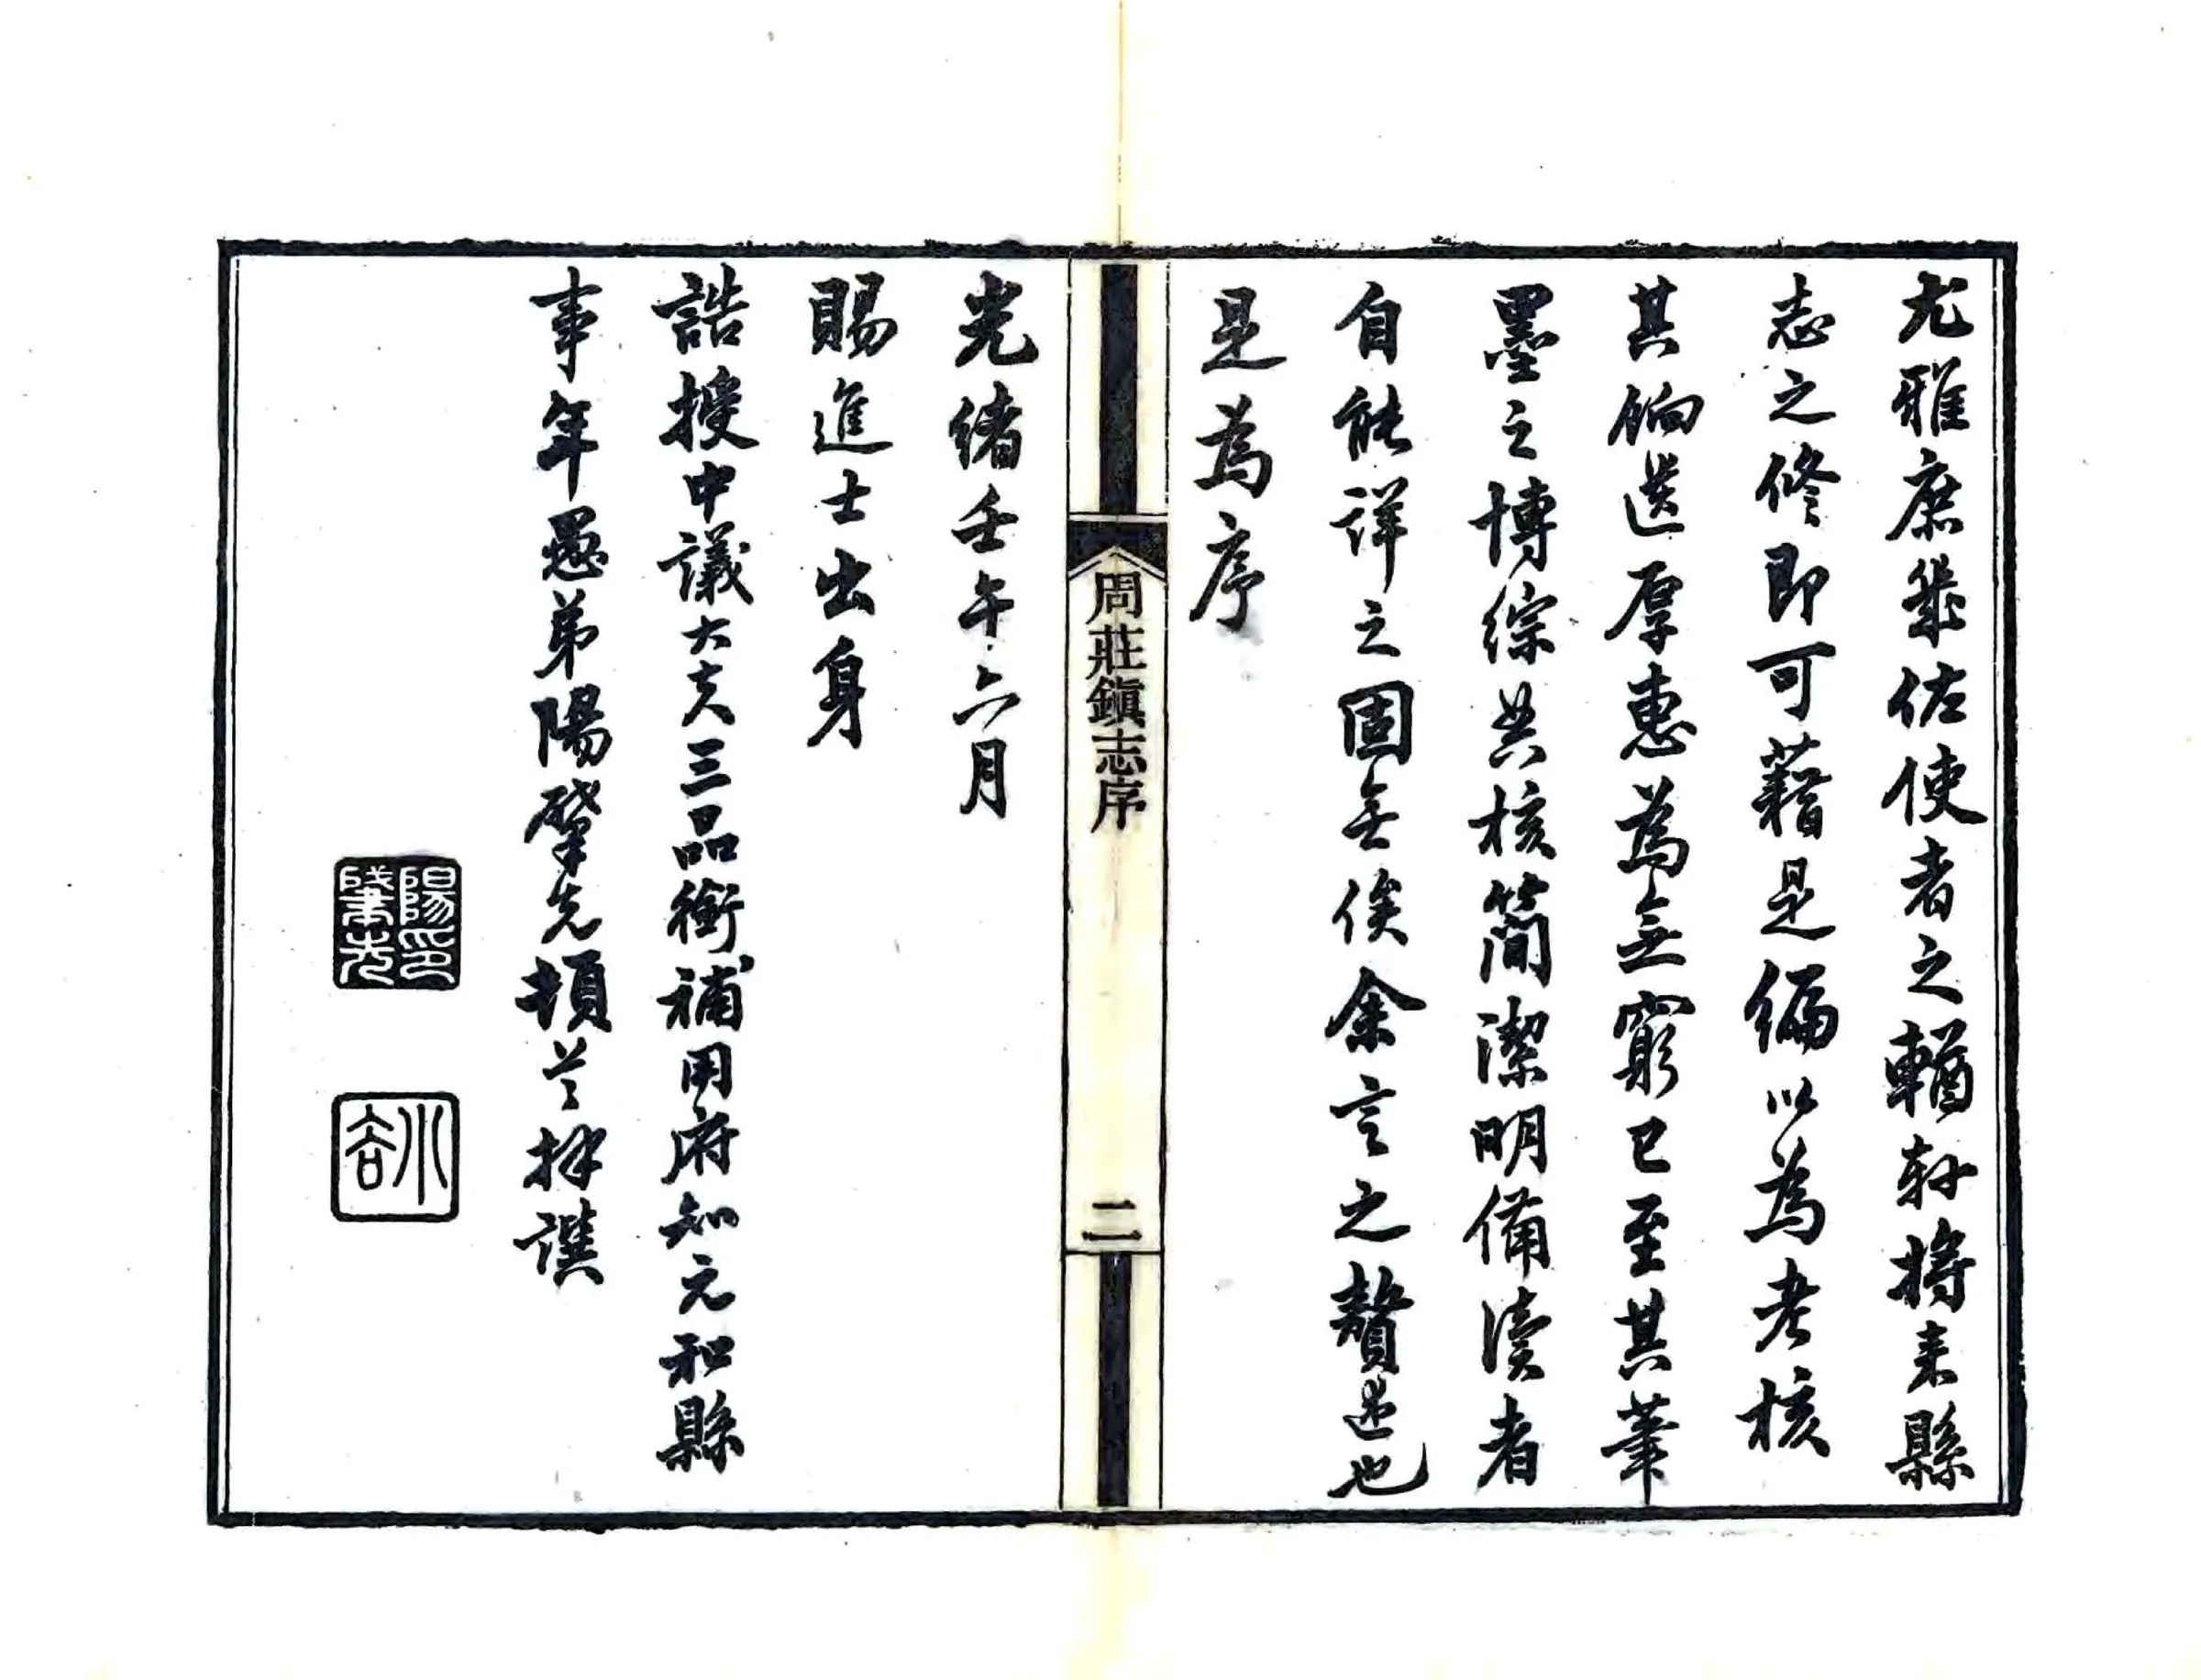 尤雅庶幾佐使者之輶軒將來縣
志之修即可藉是編以為考核
其餉遺厚惠為無窮已至其筆
墨之博綜其核簡潔明備讀者
自能詳之固無俟余言之贅述也
是為序
周莊鎮志序
二
光緒壬午六月
賜進士出身
誥授中議大夫三品銜補用府知元和縣
事年愚弟陽肇先頓首拜譔
陽印肇先